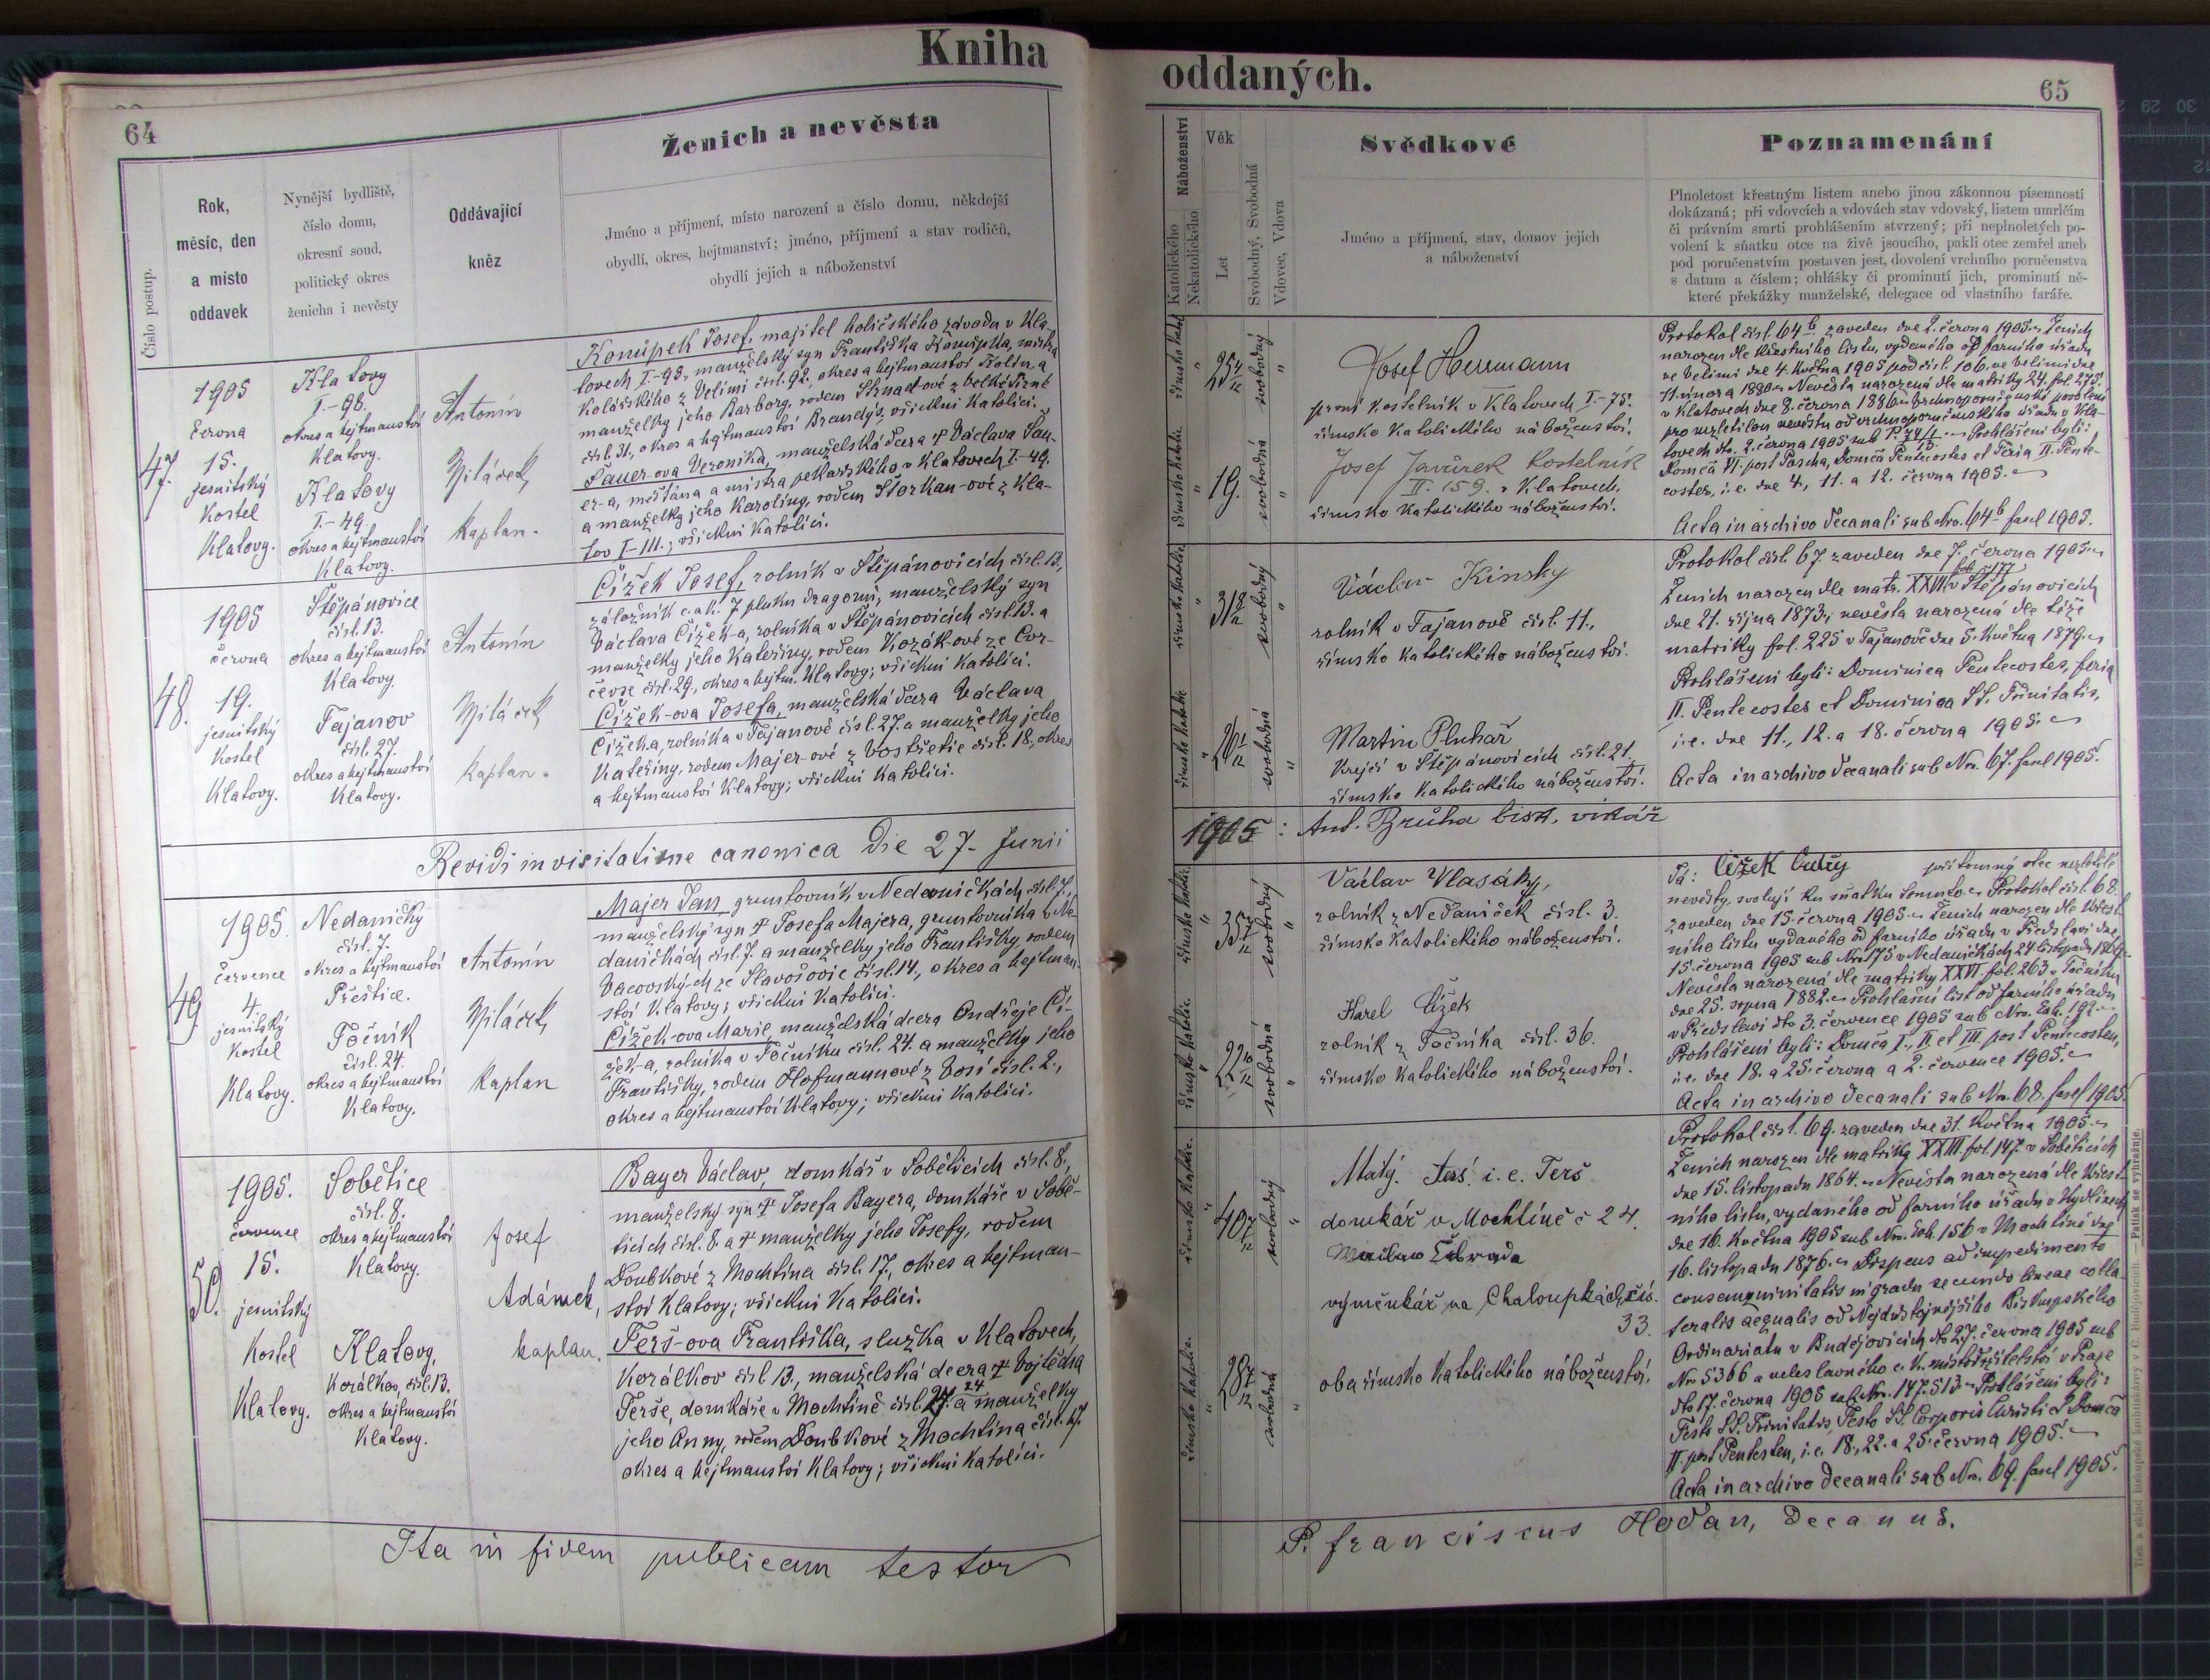 Kniha
64
Číslo postup.
Rok,
měsíc, den
a místo
oddavek
Nynější bydliště,
číslo domu,
okresní soud,
politický okres
ženicha i nevěsty
Oddávající
kněz
Ženich a nevěsta
Jméno a příjmení, místo narození a číslo domu, někdejší
obydlí, okres, hejtmanství; jméno, příjmení a stav rodičů,
obydlí jejich a náboženství
47.
1905
června
15.
jesuitský
Kostel
Klatovy.
Klatovy
I.-98.
okres a hejtmanství
Klatovy.
Klatovy
I.-49.
okres a hejtmanství
Klatovy.
Antonín
Miláček
kaplan.
Konůpek Josef, majitel holičského závodu v Kla-
tovech I-98, manželský syn Františka Konůpka, mistra
kolářského z Velimi čísl. 92, okres a hejtmanství Kolín a
manželky jeho Barbory, rodem Strnadové z Velké
čísl. 31, okres a hejtmanství Brandýs, všickni katolíci.
Sauer-ova Veronika, manželská dcera † Václava Sau-
er-a, měšťana a mistra pekařského v Klatovech I-49.
a manželky jeho Karoliny, rodem Storkan-ové z Kla-
tov I-111.; všickni katolíci.
48.
1905
června
19.
jesuitský
Kostel
Klatovy.
Štěpánovice
čísl. 13.
okres a hejtmanství
Klatovy.
Tajanov
čísl. 27.
okres a hejtmanství
Klatovy.
Antonín
Miláček
kaplan.
Čížek Josef, rolník v Štěpánovicích čísl. 13,
záložník c. a k. 7 pluku dragounů, manželský syn
Václava Čížek-a, rolníka v Štěpánovicích čísl. 13. a
manželky jeho Kateřiny, rodem Kozák-ové ze Čer-
čísl. 29., okres a hejtm. Klatovy; všickni katolíci.
Čížek-ova Josefa, manželská dcera Václava
Čížeka, rolníka v Tajanově čísl. 27. a manželky jeho
Kateřiny, rodem Majer-ové z Vostřetic čísl. 18., okres
a hejtmanství Klatovy; všickni katolíci.
Revidi in visitatione canonica die 27. Junii
49
1905.
července
4.
jesuitský
Kostel
Klatovy.
Nedaničky
čísl. 7.
okres a hejtmanství
Přeštice.
Točník
čísl. 24.
okres a hejtmanství
Klatovy.
Antonín
Miláček
kaplan
Majer Jan, gruntovník v Nedaničkách čísl. 7.,
manželský syn † Josefa Majera, gruntovníka v Ne-
daničkách čísl. 7. a manželky jeho Františky, rodem
Vacovský-ch ze Slavošovic čísl. 14., okres a hejtman-
ství Klatovy; všickni katolíci.
Čížek-ova Marie, manželská dcera Ondřeje Čí-
žek-a, rolníka v Točníku čísl. 24. a manželky jeho
Františky, rodem Hofmannové z Vosí čísl. 2.,
okres a hejtmanství Klatovy; všickni katolíci.
50.
1905.
července
15.
jesuitský
Kostel
Klatovy.
Sobětice
čísl. 8.
okres a hejtmanství
Klatovy.
Klatovy,
Korálkov, čísl. 13.
okres a hejtmanství
Klatovy.
Josef
Adámek,
kaplan.
Bayer Václav, domkář v Soběticích čísl. 8.,
manželský syn † Josefa Bayera, domkáře v Sobě-
ticích čísl. 8. a † manželky jeho Josefy, rodem
Doubkové z Mochtína čísl. 17., okres a hejtman-
ství Klatovy; všickni katolíci.
Terš-ova Františka, služka v Klatovech,
Korálkov čísl. 13., manželská dcera † Vojtěcha
Terše, domkáře v Mochtíně čísl. 24 a manželky
jeho Anny, rodem Doubkové z Mochtína čísl. 17
okres a hejtmanství Klatovy; všickni katolíci.
Ita in fidem publicam testor
oddaných.
65
Náboženství
Katolického
Nekatolického
Věk
Let
Svobodný, Svobodná
Vdovec, Vdova
Svědkové
Jméno a příjmení, stav, domov jejich
a náboženství
Poznamenání
Plnoletost křestným listem anebo jinou zákonnou písemností
dokázaná; při vdovcích a vdovách stav vdovský, listem umrlčím
či právním smrti prohlášením stvrzený; při neplnoletých po-
volení k sňatku otce na živě jsoucího, pakli otec zemřel aneb
pod poručenstvím postaven jest, dovolení vrchního poručenstva
s datum a číslem; ohlášky či prominutí jich, prominutí ně-
které překážky manželské, delegace od vlastního faráře.
římsko katol.
25 4/12
svobodný
římsko katolic.
19.
svobodná
Josef Herrmann
první kostelník v Klatovech I-75.
římsko katolického náboženství.
Josef Javůrek kostelník
II. 159. v Klatovech,
římsko katolického náboženství.
Protokol čísl. 64b. zaveden dne 2. června 1905. Ženich
narozen dle křestního listu, vydaného od farního úřadu
ve Velimi dne 4. května 1905 pod čísl. 106. ve Velimi dne
11. února 1880. Nevěsta narozená dle matriky 24. fol. 275.
v Klatovech dne 8. června 1886. Vrchnoporučenské povolení
pro nezletilou nevěstu od vrchnoporučenského úřadu v Kla-
tovech dto. 2. června 1905 sub P. Prohlášeni byli:
Domca VI. post Pascha, Domca Pentecostes et Feria II. Pente-
costes, i. e. dne 4., 11. a 12. června 1905.
Acta in archivo decanali sub Nro. 64b fasc 1905.
římsko katolic.
31
svobodný
římsko katolic.
26 1/12
svobodná
Václav Kinsky
rolník v Tajanově čísl. 11.,
římsko katolického náboženství.
Martin Pluhař
krejčí v Štěpánovicích čísl. 21,
římsko katolického náboženství.
Protokol čísl. 67. zaveden dne 7. června 1905.
fol. 177
Ženich narozen dle matr. XXIII v Štěpánovicích
dne 21. října 1873; nevěsta narozená dle téže
matriky fol. 225 v Tajanově dne 5. května 1879.
Prohlášeni byli: Dominica Pentecostes, feria
II. Pentecostes et Dominica SS. Trinitatis,
i. e. dne 11., 12. a 18. června 1905.
Acta in archivo decanali sub Nro. 67. fasc 1905.
1905: Ant. Brůha bisk. vikář
římsko katolic.
35 7/12
svobodný
římsko katolic.
22 10/12
svobodná
Václav Vlasáky,
rolník z Nedaniček čísl. 3.
římsko katolického náboženství.
Karel Čížek
rolník z Točníka čísl. 36.
římsko katolického náboženství.
Já: Čížek přítomný otec nezletilé
nevěsty, svoluji ku sňatku tomuto. Protokol čísl. 68.
zaveden dne 15. června 1905. Ženich narozen dle křest-
ního listu vydaného od farního úřadu v Předslavi dne
15. června 1905 sub Nro 175 v Nedaničkách 24. listopadu 1869.
Nevěsta narozená dle matriky XXVI. fol. 263 v Točníku
dne 25. srpna 1882. Prohlášní list od farního úřadu
v Předslavi dto 3. července 1905 sub Nro. Exh. 192.
Prohlášeni byli: Domca I., II. et III. post Pentecosten,
i. e. dne 18. a 25. června a 2. července 1905.
Acta in archivo decanali sub Nro. 68. fasc 1905.
římsko katolic.
40 7/12
svobodný
římsko katolic.
28 7/12
svobodná
Matěj. Terš i. e. Terš
domkář v Mochtíně č 24.
výměnkář na Chaloupkách čís.
33.
oba římsko katolického náboženství.
Protokol čísl. 69. zaveden dne 31. května 1905.
Ženich narozen dle matriky XXIII fol. 147. v Soběticích
dne 15. listopadu 1864. Nevěsta narozená dle křest-
ního listu, vydaného od farního úřadu v Kydlinech
dne 16. května 1905 sub Nro. Exh. 156 v Mochtíně dne
16. listopadu 1876. Dispens ad impedimento
consanguinitatis in gradu secundo lineae colla-
teralis aequalis od Nejdůstojnějšího Biskupského
Ordinariatu v Budějovicích dto 27. června 1905 sub
Nro 5366 a veleslavného c. k. místodržitelství v Praze
dto 17. června 1905 sub Nro. 147.513. Prohlášeni byli:
Festo SS. Trinitatis, Festo SS. Corporis Christi & Domca
II. post Pentecosten, i. e. 18., 22. a 25. června 1905.
Acta in archivo decanali sub Nro. 69. fasc 1905.
P. Franciscus Hodan, decanus.
Tisk a sklad biskupské knihtiskárny v Č. Budějovicích. — Patisk se vyhražuje.